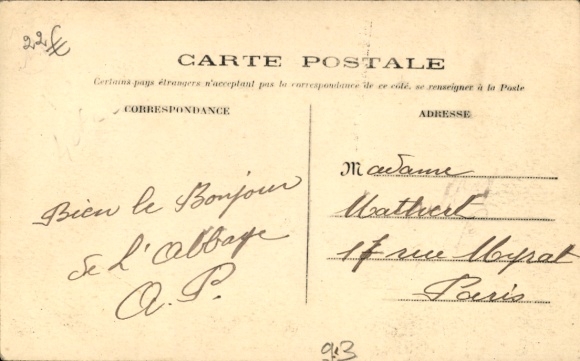 22 F
CARTE POSTALE
Certains pays étrangers n'acceptant pas la correspondance de ce côté, se renseigner à la Poste
CORRESPONDANCE
Bien le Bonjour
de l'abbaye
A.P.
ADRESSE
Madame
Mathert
17 rue Myrat
Paris
93